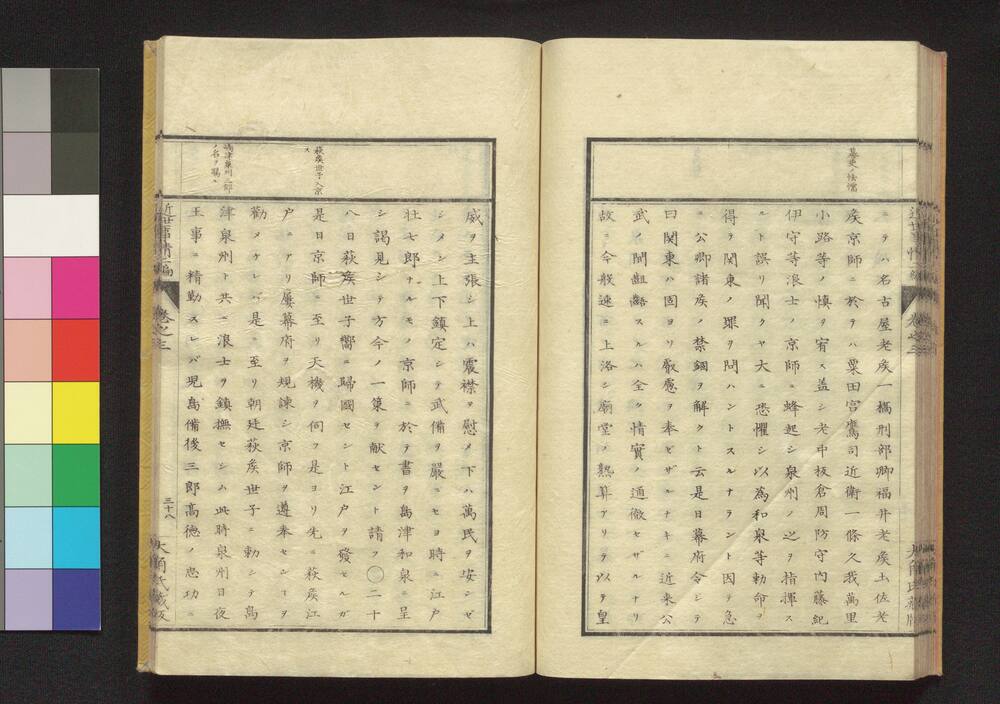 幕吏ノ怯懦
ニテハ名古屋老矦一橋刑部卿福井老矦土佐老
矦京師ニ於テハ粟田宮鷹司近衛一條久我萬里
小路等ノ慎ヲ宥ス盖シ老中板倉周防守内藤紀
伊守等浪士ノ京師ニ蜂起シ泉州ノ之ヲ指揮ス
ルト誤リ聞クヤ大ニ恐懼シ以為和泉等勅命ヲ
得テ関東ノ罪ヲ問ハントスルナラント因テ急
ニ公卿諸矦ノ禁錮ヲ解クト云是日幕府令シテ
曰関東ハ固ヨリ叡慮ヲ奉ビザルナキニ近来公
武ノ間齟齬スルハ全ク情實ノ通徹セザルナリ
故ニ今般速ニ上洛シ廟堂ノ熟算アリテ以テ皇
威ヲ主張シ上ハ震襟ヲ慰メ下ハ萬民ヲ安ンゼ
シメン上下鎮定シテ武備ヲ嚴ニセヨ時ニ江戸
壮士七郎ナルモノ京師ニ於テ書ヲ島津和泉ニ呈
シ謁見シテ方今ノ一策ヲ献セント請フ〇二十
萩矦世子入京
ス
八日萩矦世子嚮ニ歸國セント江戸ヲ發セルガ
是日京師ニ至リ天機ヲ伺フ是ヨリ先ニ萩矦江
戸ニアリ屢幕府ヲ規諌シ京師ヲ遵奉センヿヲ
勸メケレバ是ニ至リ朝廷萩矦世子ニ勅シテ島
嶋津泉州三郎
ノ名ヲ賜フ
津泉州ト共ニ浪士ヲ鎮撫セシム此時泉州日夜
王事ニ精勤スレバ児島備後三郎高徳ノ忠功ニ
近世事情二編
巻之三
三十八